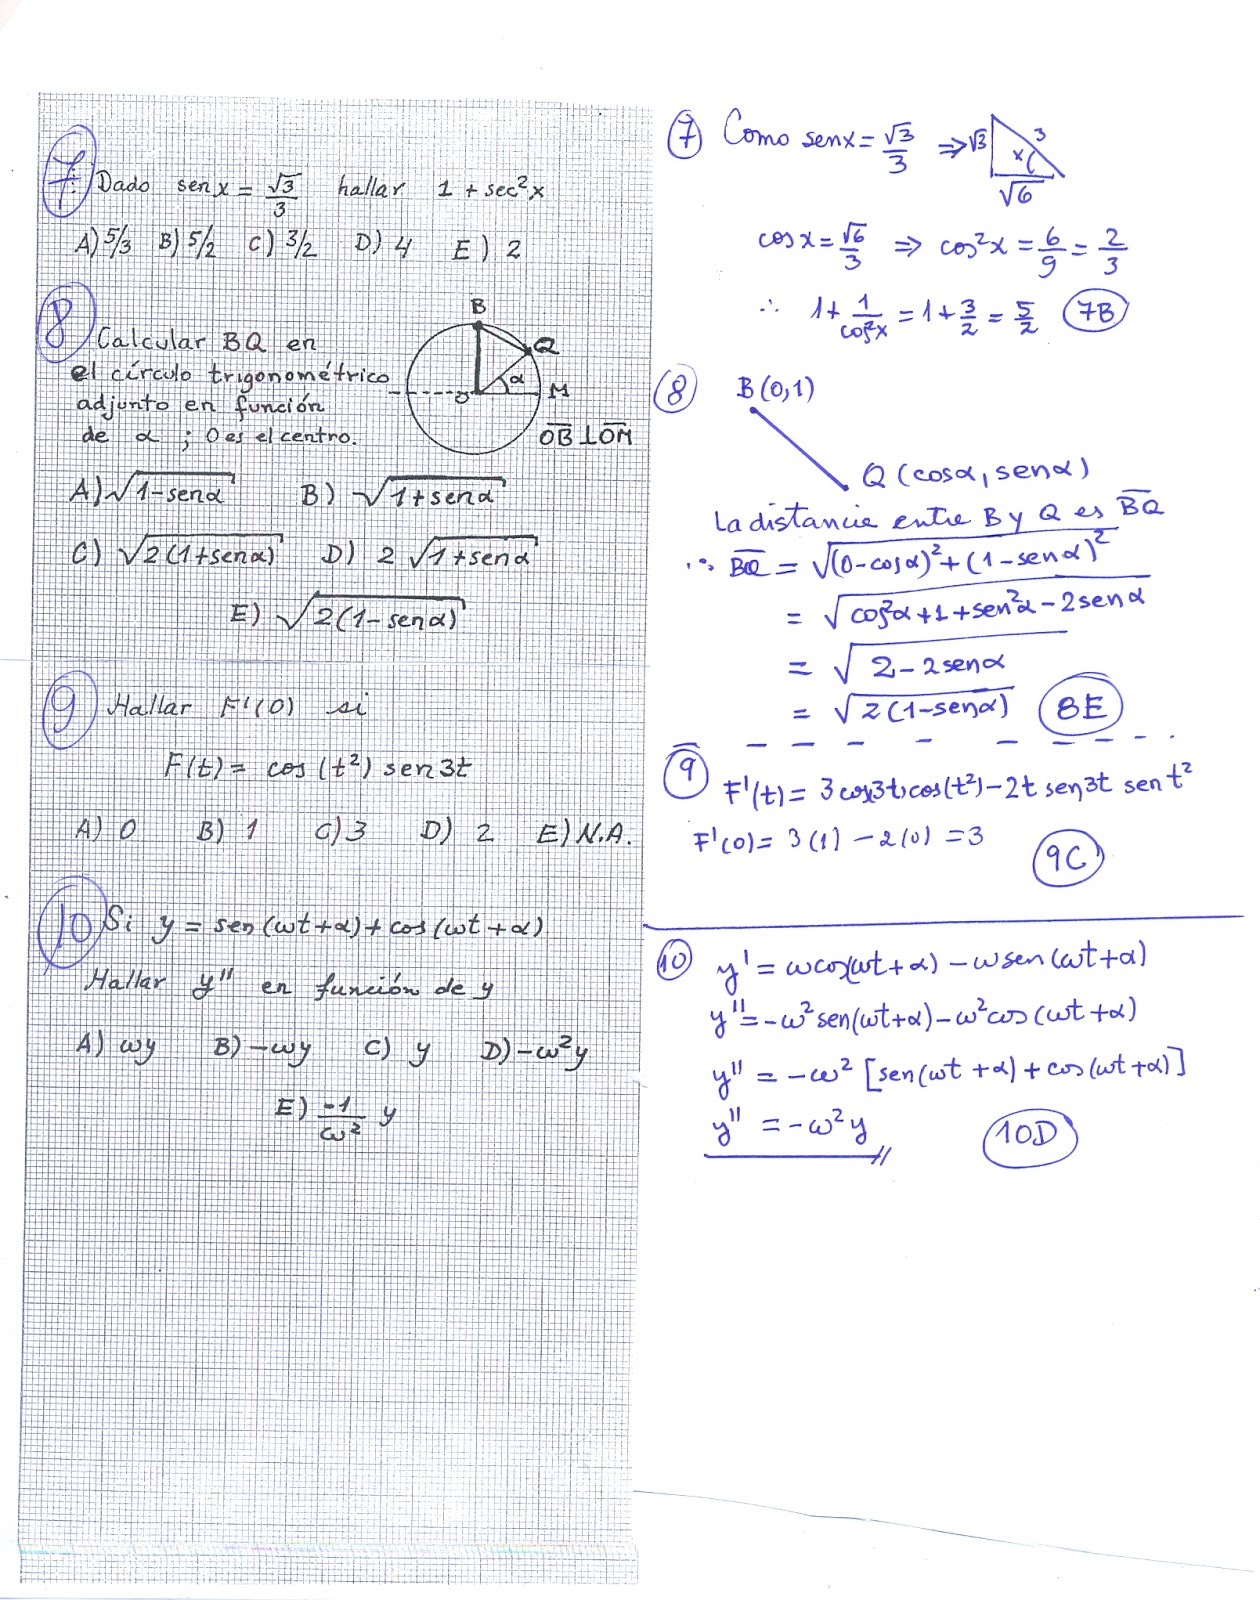 7. Dado sen x = √3/3 hallar 1 + sec²x
A) 5/3 B) 5/2 C) 3/2 D) 4 E) 2
8 Calcular BQ en
el círculo trigonométrico
adjunto en función
de α ; O es el centro.
B
Q
α
O
M
OB ⊥ OM
A) √(1-senα) B) √(1+senα)
C) √(2(1+senα)) D) 2 √(1+senα)
E) √(2(1-senα))
9 Hallar F'(0) si
F(t) = cos (t²) sen 3t
A) 0 B) 1 C) 3 D) 2 E) N.A.
10 Si y = sen (ωt+α) + cos (ωt+α)
Hallar y'' en función de y
A) ωy B) -ωy C) y D) -ω²y
E) -1/ω² y
7 Como senx = √3/3 ⇒ √3 3 x √6
cos x = √6/3 ⇒ cos²x = 6/9 = 2/3
∴ 1 + 1/cos²x = 1 + 3/2 = 5/2 7B
8 B(0,1)
Q (cosα, senα)
La distancia entre B y Q es BQ
∴ BQ = √((0-cosα)² + (1-senα)²)
= √(cos²α + 1 + sen²α - 2senα)
= √(2 - 2senα)
= √(2(1-senα)) 8E
9 F'(t) = 3cos3t.cos(t²) - 2t sen3t sen t²
F'(0) = 3(1) - 2(0) = 3
9C
10 y' = ωcos(ωt+α) - ωsen(ωt+α)
y'' = -ω²sen(ωt+α) - ω²cos(ωt+α)
y'' = -ω² [sen(ωt+α) + cos(ωt+α)]
y'' = -ω²y 10D